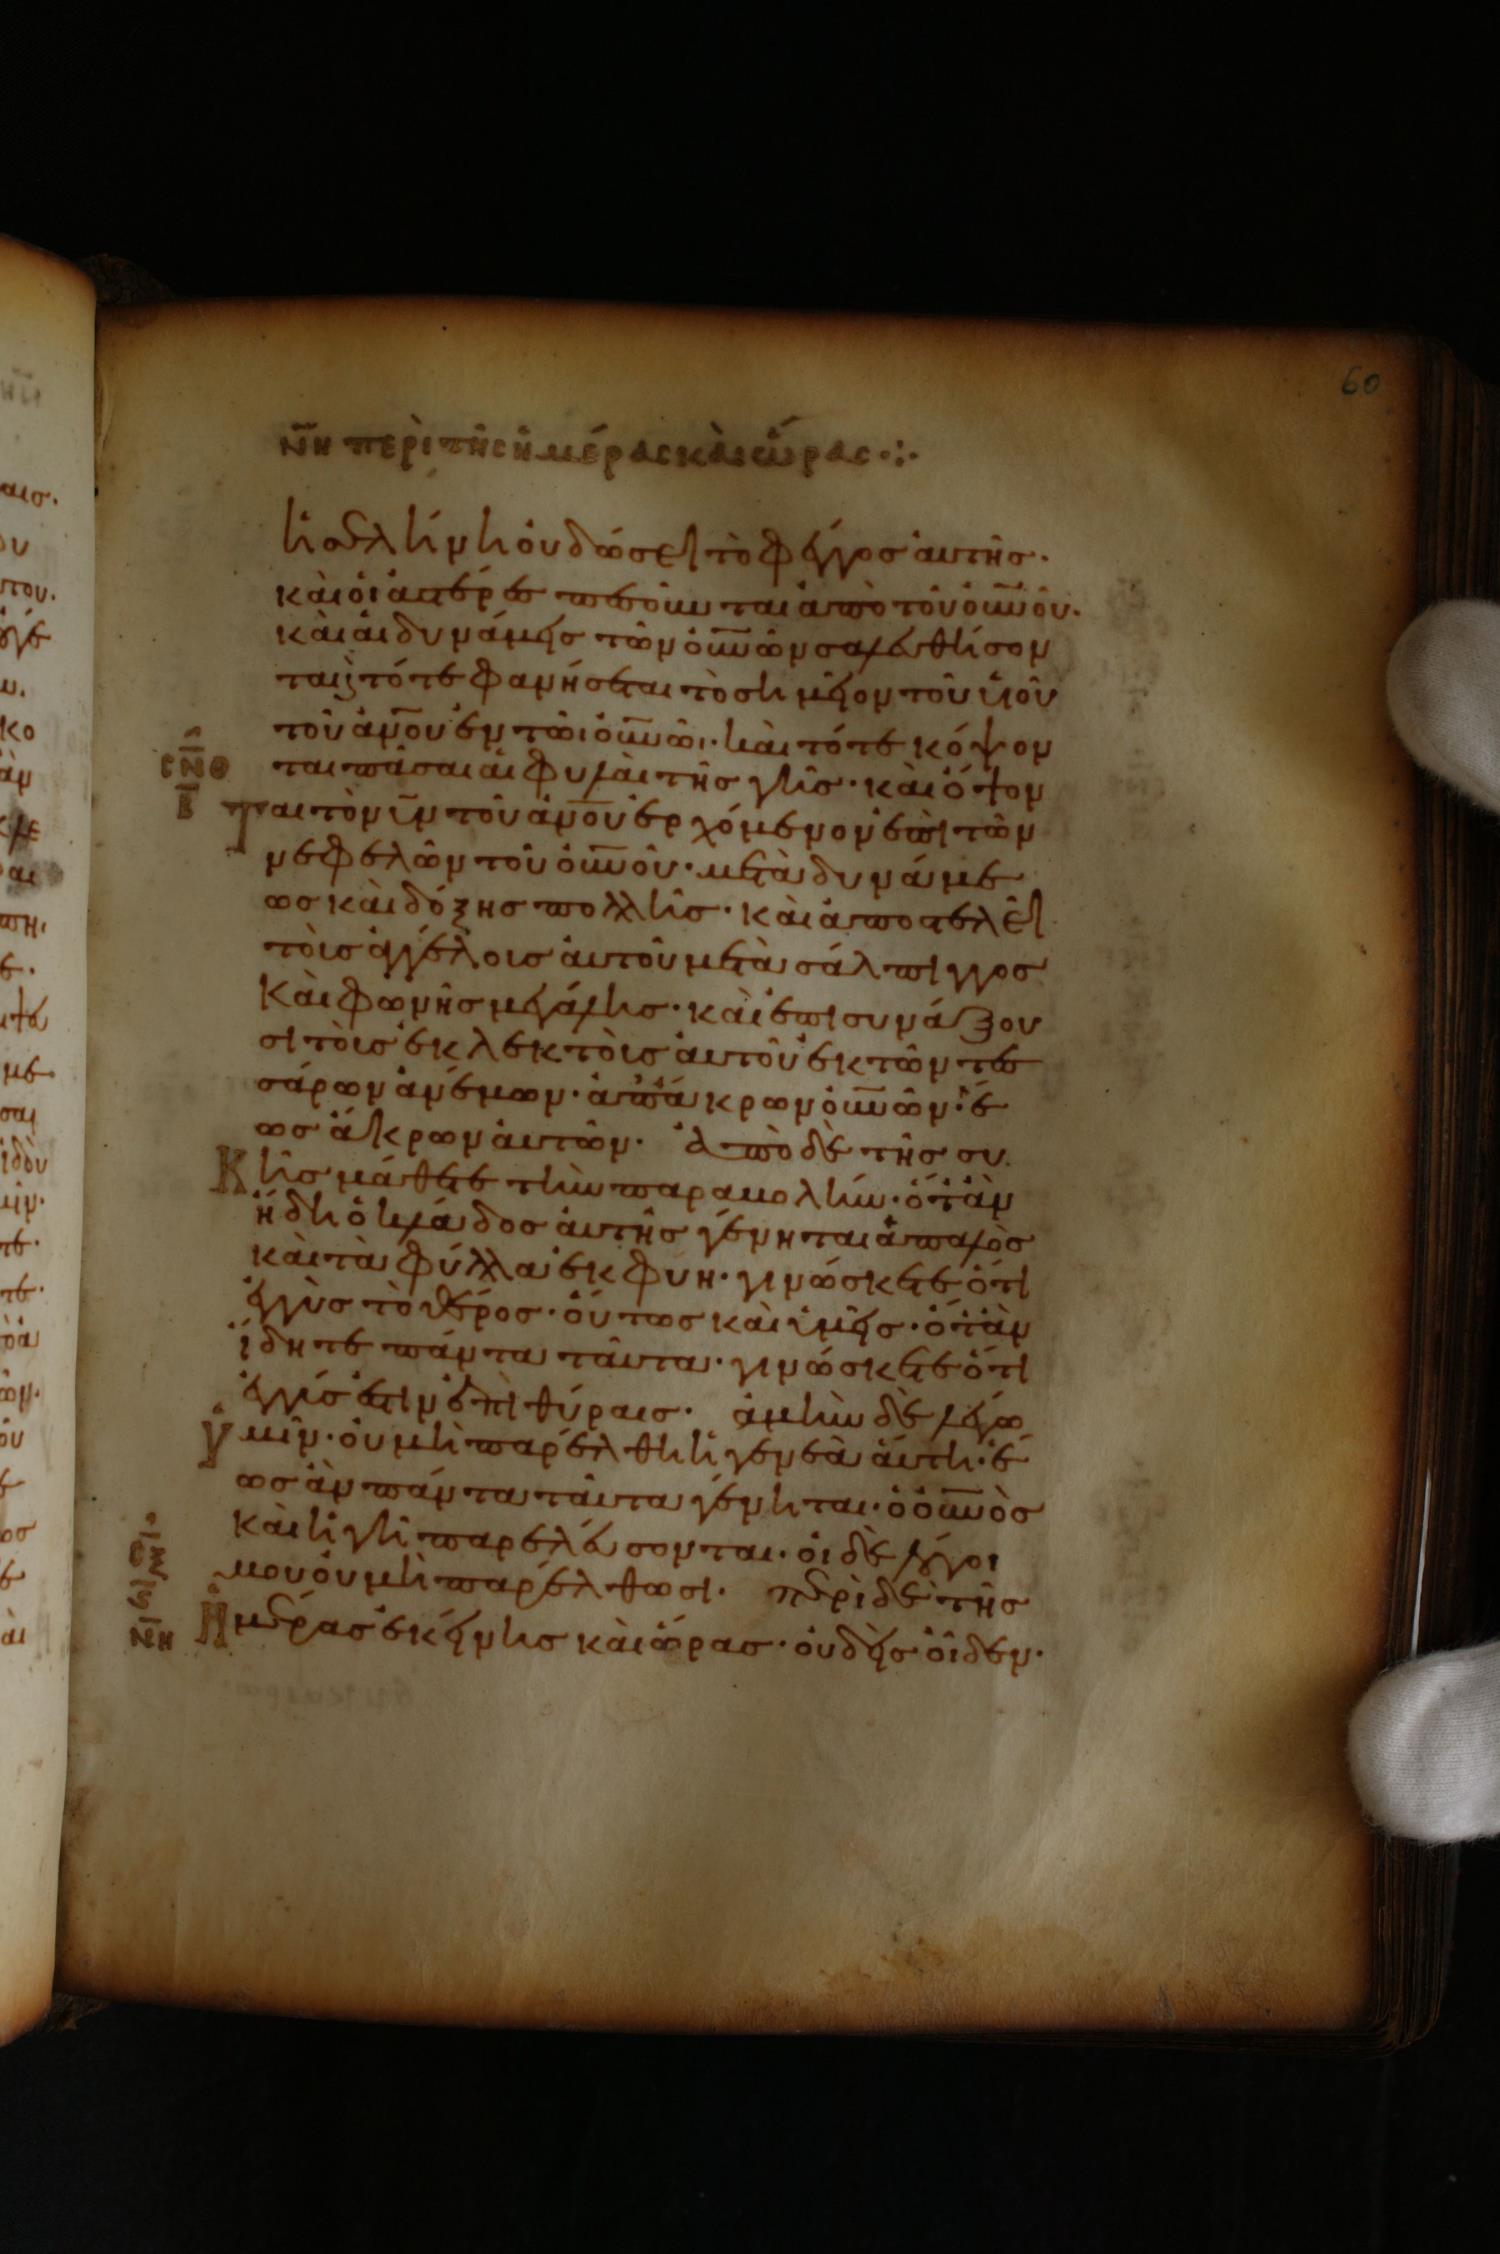 60
ν̅η̅ περὶ τῆς ἡμέρας καὶ ὥρας·:·
ἡ σελήνη οὐ δώσει τὸ φέγγος αὐτῆς·
καὶ οἱ ἀστέρες πεσοῦνται ἀπὸ τοῦ οὐ̅ν̅οῦ·
καὶ αἱ δυνάμεις τῶν οὐ̅ν̅ῶν σαλευθήσον
ται· τότε φανήσεται τὸ σημεῖον τοῦ υἱοῦ
τοῦ ἀν̅ο̅υ̅ ἐν τῶι οὐ̅ν̅ῶι· καὶ τότε κόψον
ται πᾶσαι αἱ φυλαὶ τῆς γῆς· καὶ ὄψον
ται τὸν υ̅ν̅ τοῦ ἀν̅ο̅υ̅ ἐρχόμενον ἐπὶ τῶν
νεφελῶν τοῦ οὐ̅ν̅οῦ· μετὰ δυνάμε
ως καὶ δόξης πολλῆς· καὶ ἀποστελεῖ
τοὺς ἀγγέλους αὐτοῦ μετὰ σάλπιγγος
καὶ φωνῆς μεγάλης· καὶ ἐπισυνάξου
σι τοὺς ἐκλεκτοὺς αὐτοῦ ἐκ τῶν τεσ
σάρων ἀνέμων· ἀπ' ἄκρων οὐ̅ν̅ῶν· ἕ
ως ἄκρων αὐτῶν· ἀπὸ δὲ τῆς συ
κῆς μάθετε τὴν παραβολήν· ὅταν
ἤδη ὁ κλάδος αὐτῆς γένηται ἁπαλὸς
καὶ τὰ φύλλα ἐκφύη· γινώσκετε ὅτι
ἐγγὺς τὸ θέρος· οὕτως καὶ ὑμεῖς· ὅταν
ἴδητε πάντα ταῦτα· γινώσκετε ὅτι
ἐγγύς ἐστιν ἐπὶ θύραις· ἀμὴν δὲ λέγω
ὑμῖν· οὐ μὴ παρέλθη ἡ γενεὰ αὕτη· ἕ
ως ἂν πάντα ταῦτα γένηται· ὁ οὐ̅ν̅ὸς
καὶ ἡ γῆ παρελεύσονται· οἱ δὲ λόγοι
μου οὐ μὴ παρέλθωσι· περὶ δὲ τῆς
ἡμέρας ἐκείνης καὶ ὥρας· οὐδεὶς οἶδεν·